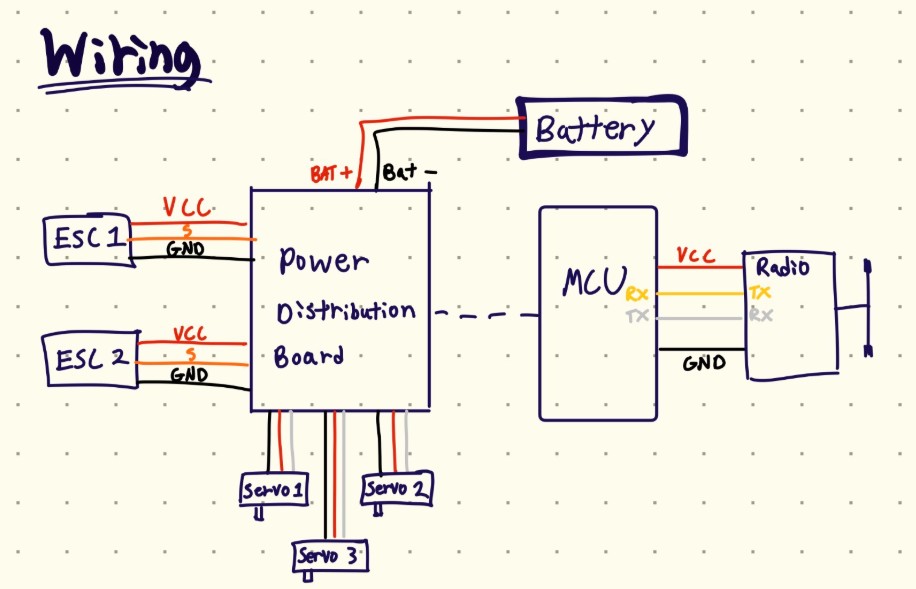 Wiring
Battery
BAT + Bat -
VCC
S
GND
ESC 1
Power
Distribution
Board
VCC
S
GND
ESC 2
MCU
RX
TX
VCC
GND
Radio
TX
RX
Servo 1
Servo 2
Servo 3